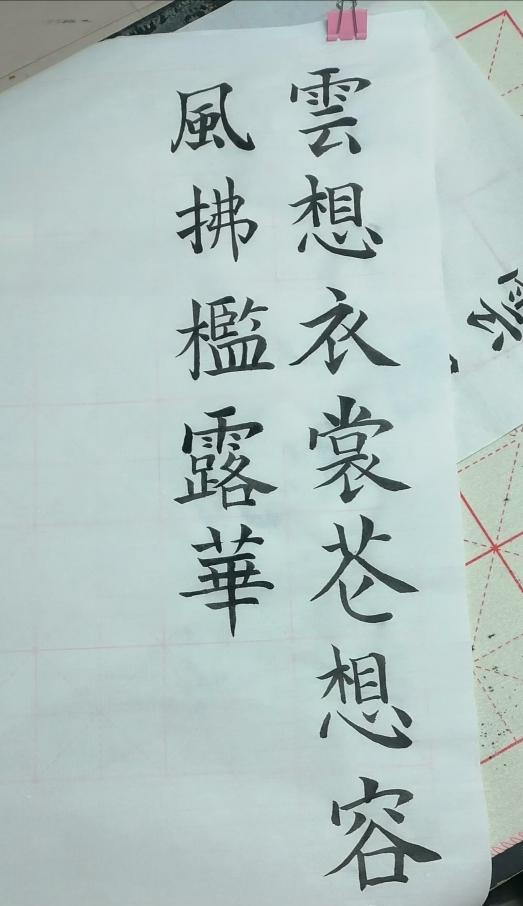 雲想衣裳芲想容
風拂檻露華